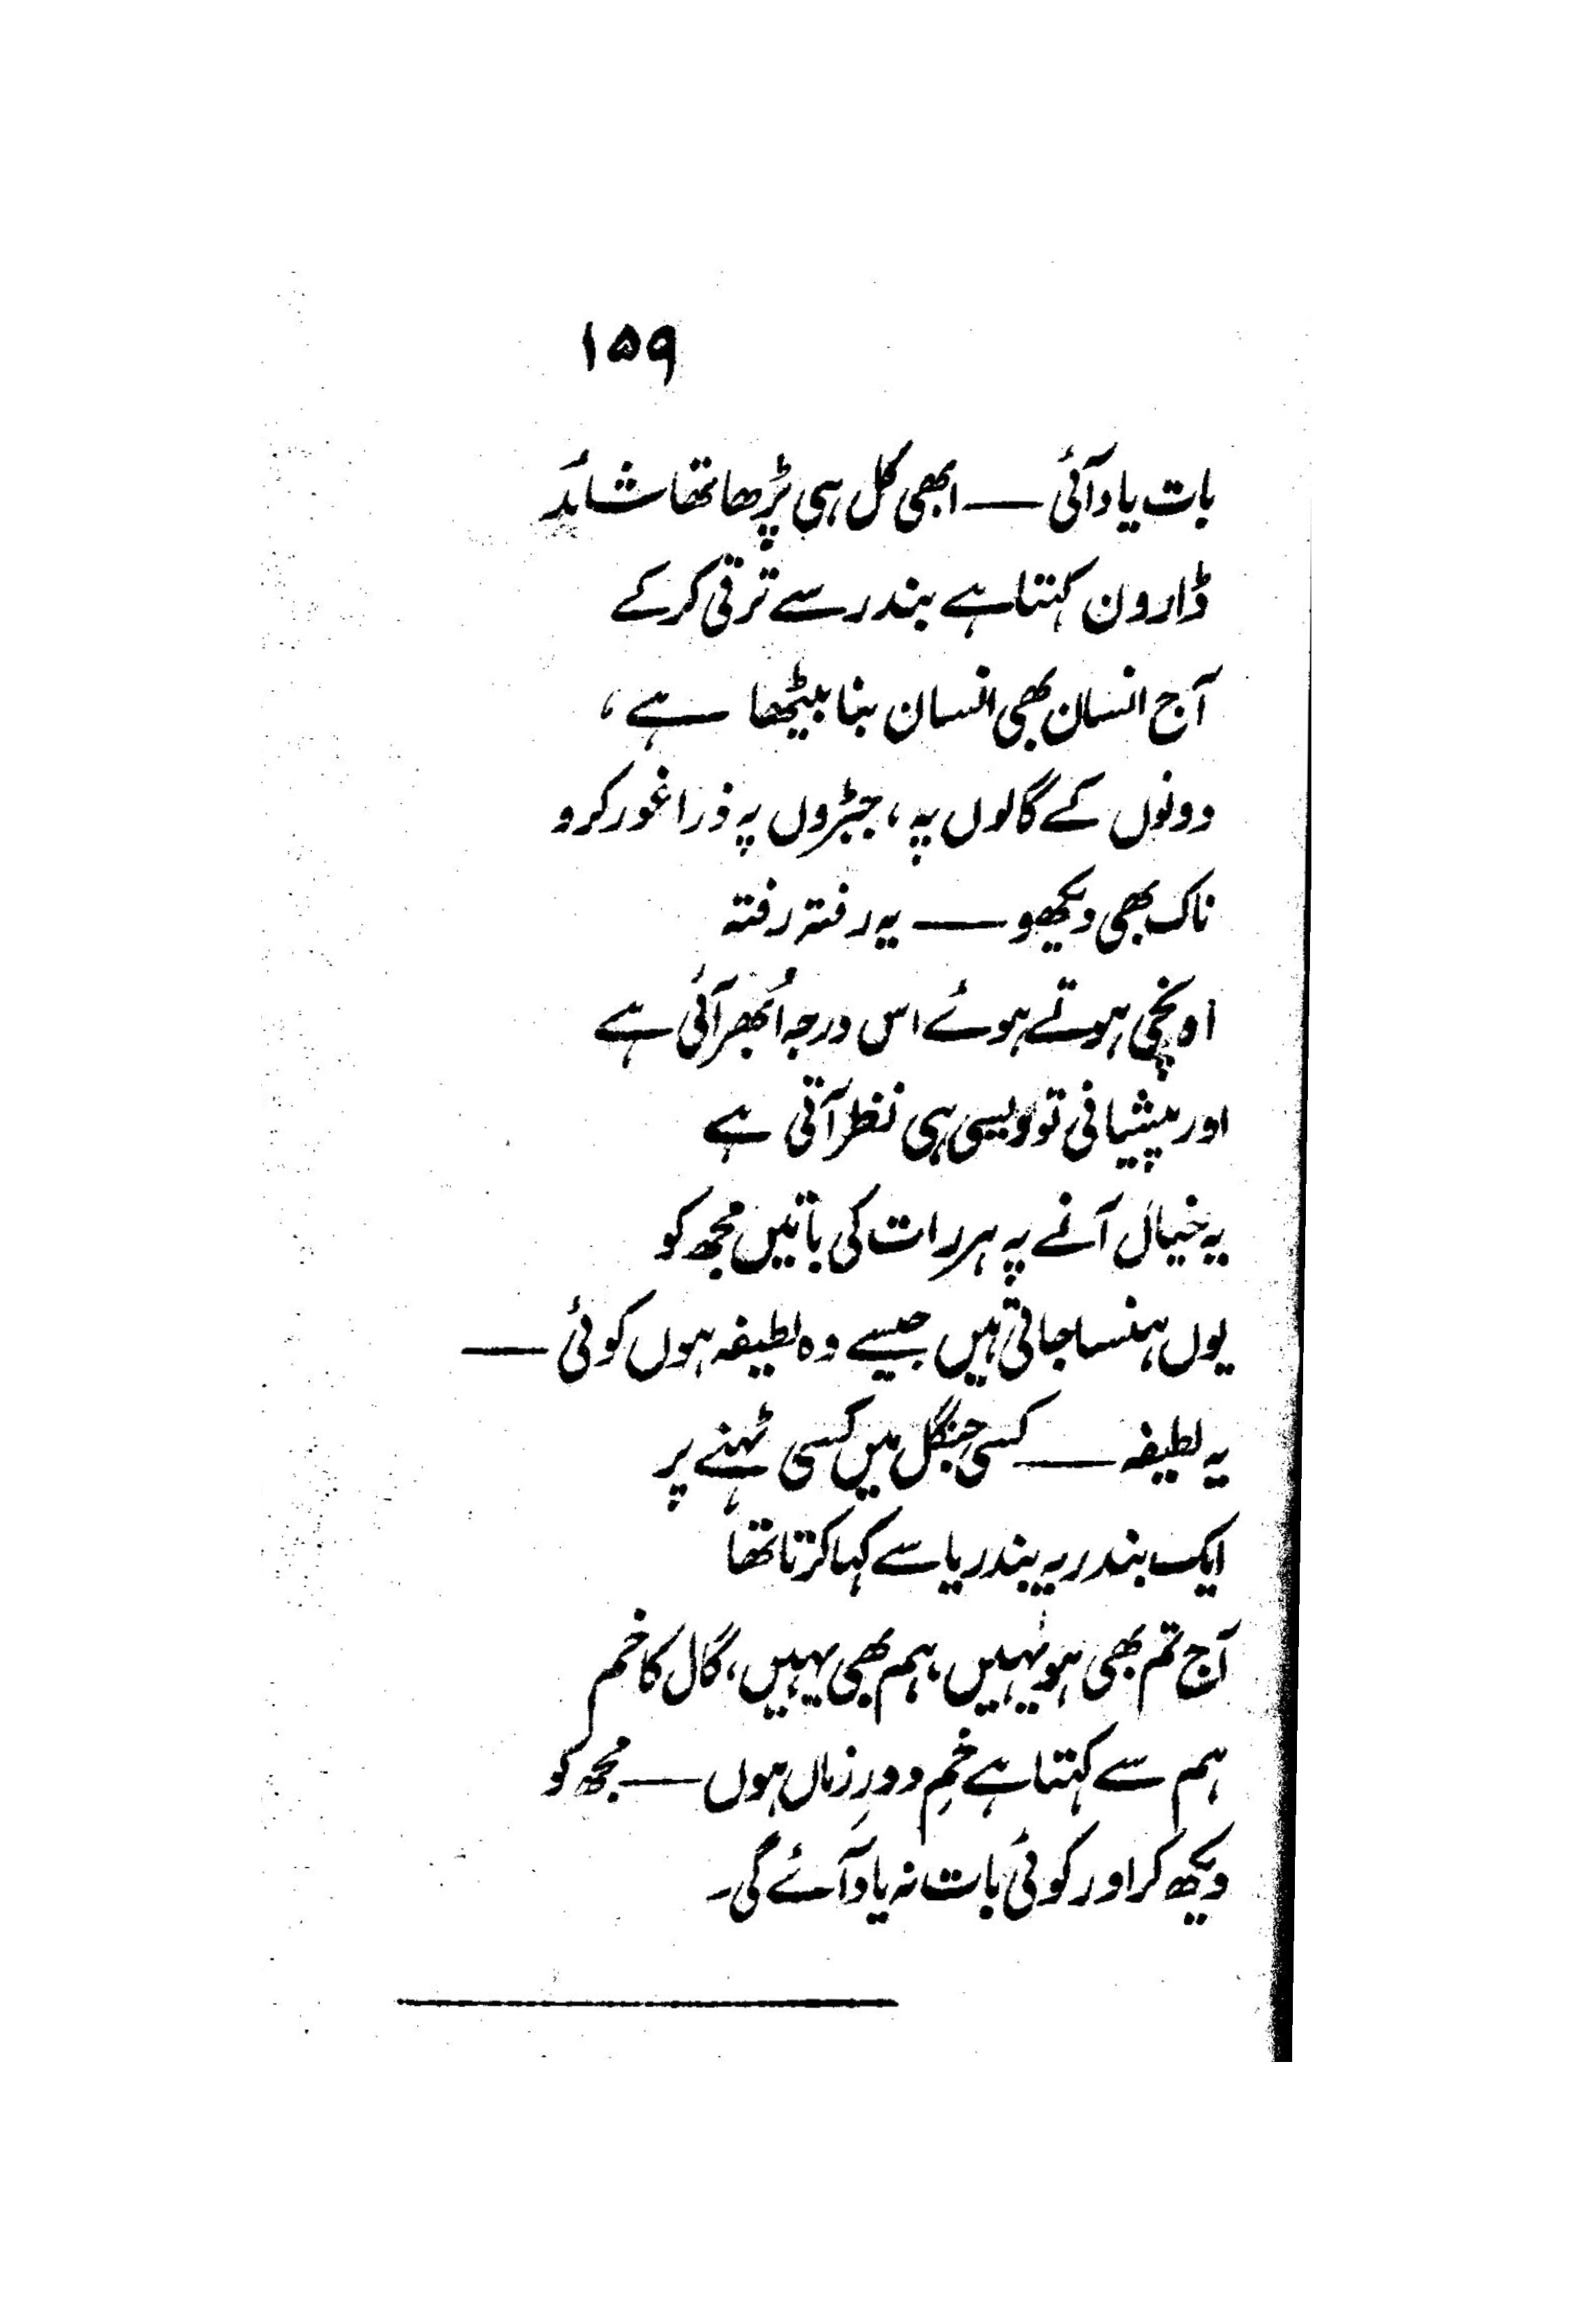 ۱۵۹
بات یاد آئی — ابھی کل ہی پڑھا تھا شائد
ڈارون کہتا ہے بندر سے ترقی کر کے
آج انسان بھی انسان بنا بیٹھا ہے،
دونوں کے گالوں پہ، جبڑوں پہ ذرا غور کرو
ناک بھی دیکھو — یہ رفتہ رفتہ
اونچی ہوتے ہوئے اس درجہ اُبھر آئی ہے
اور پیشانی تو ویسی ہی نظر آتی ہے
یہ خیال آنے پہ ہر رات کی باتیں مجھ کو
یوں ہنسا جاتی ہیں جیسے وہ لطیفہ ہوں کوئی —
یہ لطیفہ — کسی جنگل میں کسی ٹہنے پر
ایک بندر یہ بندریا سے کہا کرتا تھا
آج تم بھی ہو یہیں، ہم بھی یہیں، گال کا خم
ہم سے کہتا ہے خمِ دورِ زماں ہوں — مجھ کو
دیکھ کر اور کوئی بات نہ یاد آئے گی۔